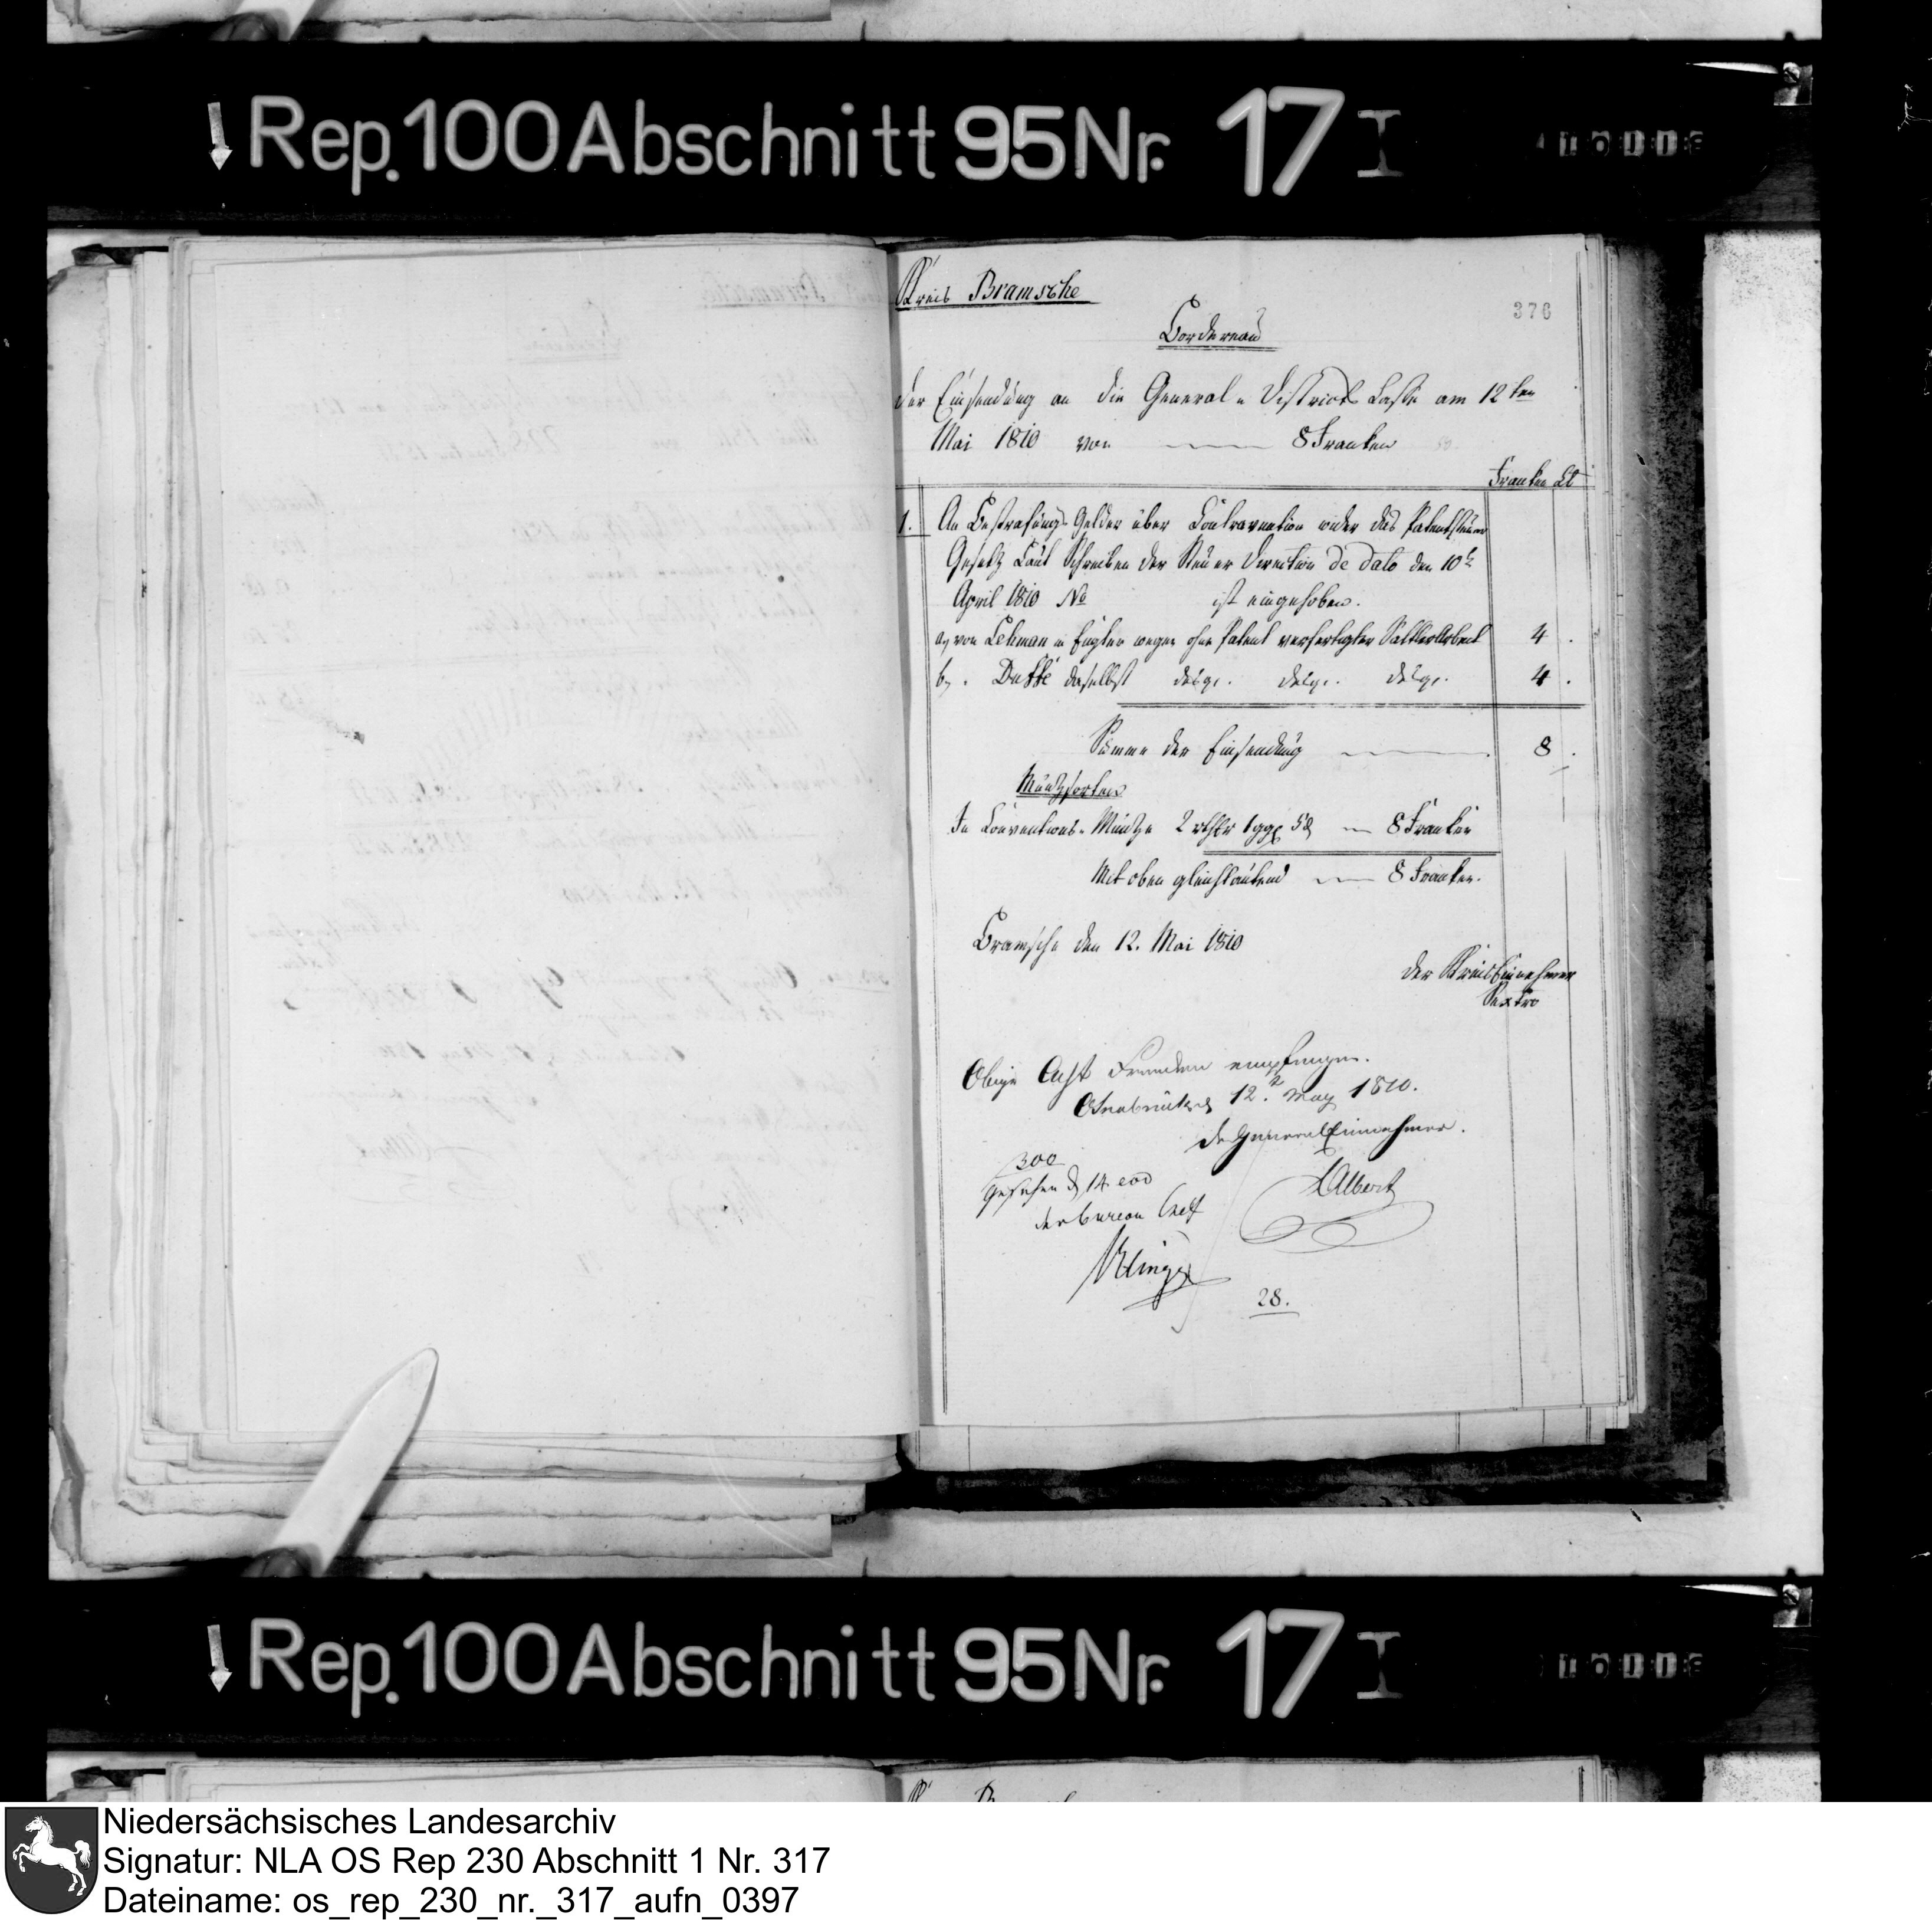 Rep. 100 Abschnitt 95 Nr. 17 I
Kreis Bramsche
376
Bordereau
der Einsendung an die General-Districts Casse am 12ten
Mai 1810 von 8 Franken
Franken Ct
1. An Bestrafungs-Gelder über Contravention wider das Patentsteuer
Gesetz Laut Schreiben der Steuer Direction de dato den 10t
April 1810 No ist eingehoben.
a, von Lehman in Engter wegen ohne Patent verfertigter Sattler Arbeit 4 .
b, . Duffé daselbst desgl. desgl. desgl. 4 .
Summe der Einsendung 8 .
Müntzsorten
In Conventions-Müntze 2 rthlr 1 ggr 5 d 8 Franken
Mit oben gleichlautend 8 Franken.
Bramsche den 12. Mai 1810
Der Kreis Einnehmer
Sextro
Obige Acht Franken empfangen.
Osnabrück d 12. May 1810.
Der General Einnehmer.
300
Gesehen d 14. eod
der Bureau Chef
Albert
28.
Rep. 100 Abschnitt 95 Nr. 17 I
Niedersächsisches Landesarchiv
Signatur: NLA OS Rep 230 Abschnitt 1 Nr. 317
Dateiname: os_rep_230_nr._317_aufn_0397